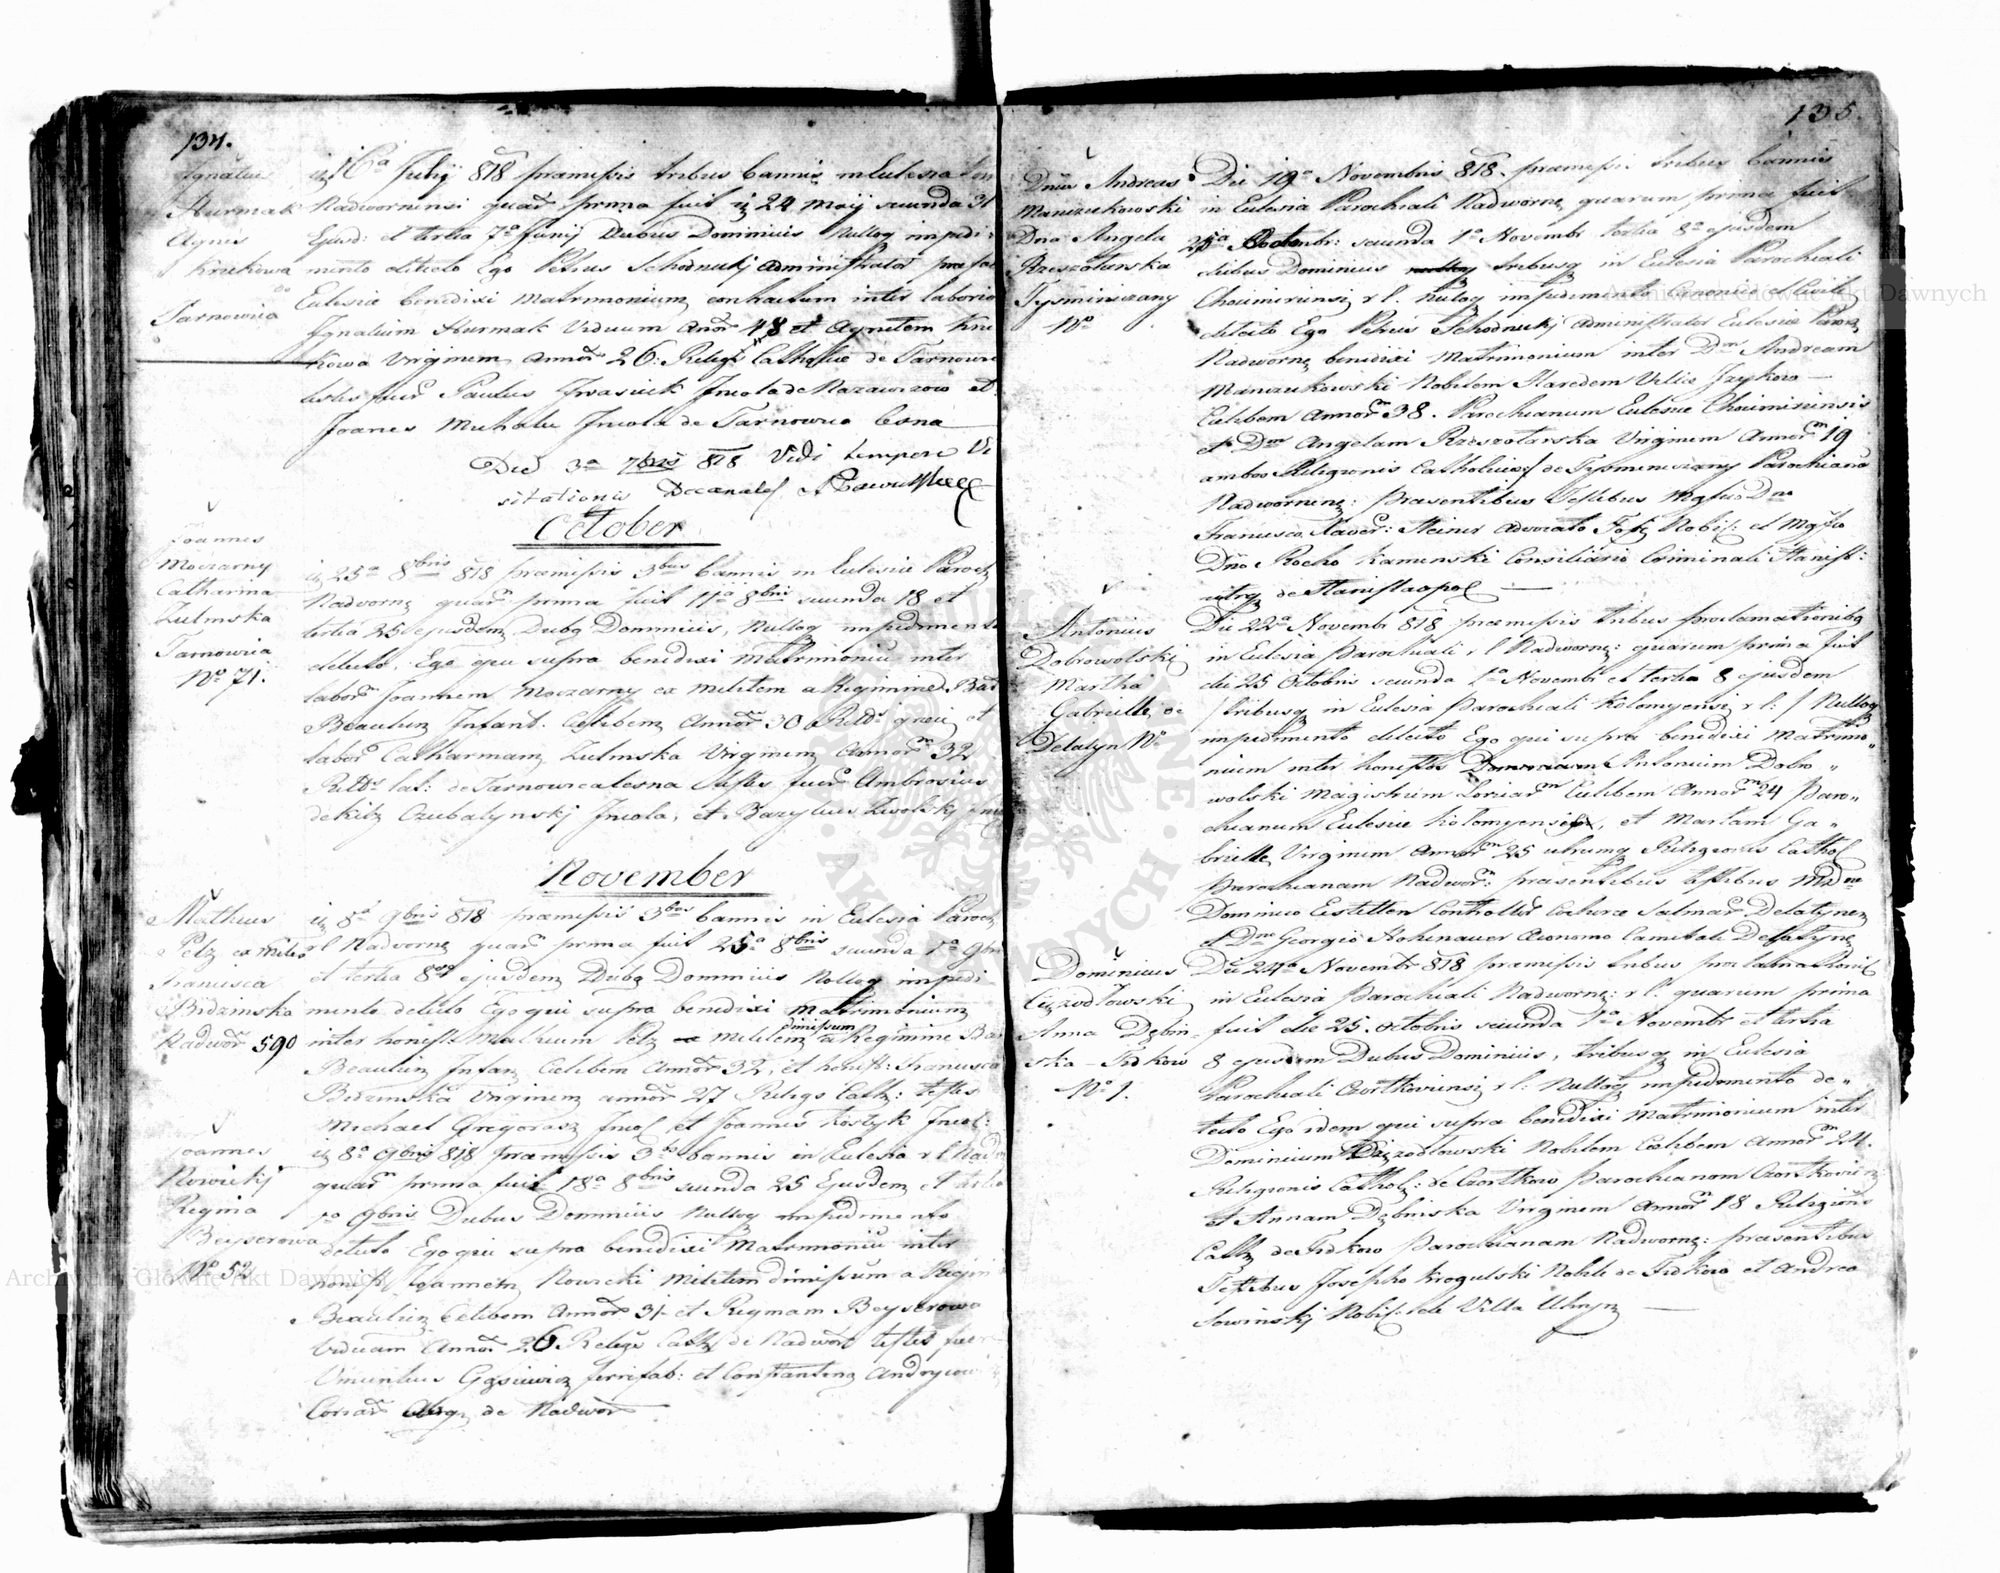 134.
Ignatius
Hurmak
Agnis
Krukowa
de
Tarnowica
16ª Julij 818 præmissis tribus bannis in Eulesia
Nadwornensi quar prima fuit 24 Maij secunda 31
Ejusd: et tertia 7ª Junij Duobus Dominicis Nulloq impedi-
mento detecto Ego Petrus Schodnickj Administrator præfatæ
Eulesiæ benedixi Matrimonium contractum inter laborio
Ignatium Hurmak Viduum Anor 48 et Agnetem Kru
kowa Virginem annor 26. Religs Catholice de Tarnowica
testes fuer Paulus Iwasiuk Incola de Nazawizow et
Joanes Muhalu Incola de Tarnowica lesna
Die 3ª 7bris 818 Vidi tempore Vi
sitationis Decanalis
October
Joannes
Moczarny
Catharina
Zulinska
Tarnowica
Nº 71.
25ª 8bris 818 præmissis 3bus bannis in Eulesia Paroch
Nadworn quar prima fuit 11ª 8bris secunda 18 et
tertia 25 ejusdem Dubq Dominicis, Nulloq impedimento
detecto. Ego qui supra benedixi Matrimoniu inter
labor Joannem Moczarny ex Militem a Regimine Bar
Beaulieu Infant. Celibem Annor 30 Ritus græci et
labor Catharinam Zulinska Virginem Annor 32
Ritus lat: de Tarnowica lesna testes fuer Ambrosius
Czubatynskj Incola, et Bazylius
November
Matheus
Pelz ex miles
Francisca
Bidzinska
Nadwor 590
8ª 9bris 818 præmissis 3bus bannis in Eulesia Paroch
r l Nadworn quar prima fuit 25ª 8bris secunda 1ª 9bris
et tertia 8va ejusdem Dubq Dominicis Nulloq impedi
mento detecto Ego qui supra benedixi Matrimonium
dimissum
inter honest: Matheum Pelz militem a Regimine Bar
Beaulieu Infan Celibem Annor 32, et honest: Francisca
Bidzinska Virginem annor 27 Religs Cath: testes
Michael Gregorasz Incol et Joannes Kostyk Incol:
Joannes
Nowickj
Regina
Beyserowa
Nº 52
8ª 9bris 818 præmissis 3bus bannis in Eulesia r l Nadw
quar prima fuit 18ª 8bris secunda 25 Ejusdem et tertia
1ª 9bris Dubus Dominicis Nulloq impedimento
detecto Ego qui supra benedixi Matrimoniu inter
honest Joannem Nowicki Militem dimissum a Regim
Beaulieu Celibem Annor 31 et Reginam Beyserowa
Viduam Annor 26 Religs Cath de Nadwor testes fuer
Vincentius Gąsiewicz ferrifab: et Constantinq Andryiow
Coriar de Nadwor
135.
Dnus Andreas
Manczukowski
Dna Angela
Rzeszotarska
Tysminiczany
Nº
Die 19ª Novembris 818. præmissis tribus bannis
in Eulesia Parochiali Nadworn quarum prima fuit
25ª Octobr: secunda 1ª Novembr tertia 8ª ejusdem
diebus Dominicis tribusq in Eulesia Parochiali
Chocimirensi r l. Nulloq impedimento Canonico et Civili
detecto Ego Petrus Schodnickj Administrator Eulesiæ Paroch
Nadworn benedixi Matrimonium inter Dm Andream
Manczukowski Nobilem Haredem Villæ Jzykow
Celibem Annor 38. Parochianum Eulesiæ Chocimirensis
et Dm Angelam Rzeszotarska Virginem Annor 19
ambos Religionis Catholicæ de Tysmeniczany Parochiana
Nadwornen: præsentibus Testibus Mgfico Dno
Francisco Xaver: Steiner Advocato Nobil: et Mgfico
Dno Rocho Kaminski Consiliario Criminali Stanisl:
utrq de Stanislaopol
Antonius
Dobrowolski
Martha
Gabrielle de
Delatyn Nº
Die 22ª Novembr 818 præmissis tribus proclamationibq
in Eulesia Parochiali r l Nadworn: quarum prima fuit
die 25 Octobris secunda 1ª Novembr et tertia 8 ejusdem
/ tribusq in Eulesia Parochiali Kolomyensi r l: / Nulloq
impedimento detecto Ego qui supra benedixi Matrimo
nium inter honestos Antonium Dobro
wolski Magistrum Coriar Celibem Annor 24 Paro
chianum Eulesiæ Kolomyensis, et Martam Ga
brielle Virginem Annor 25 utrumq Religionis Cathol
Parochianam Nadwor: præsentibus testibus
Dominico Controllor Delatynen
et Dno Georgio Hohenauer Oeconomo Camerali Delatyn
Dominicus
Ciązodłowski
Anna Dębin-
ska – Fitkow
Nº 1.
Die 24ª Novembr 818 præmissis tribus proclamationi
in Eulesia Parochiali Nadworn: r l. quarum prima
fuit die 25. octobris secunda 1ª Novembr et tertia
8 ejusdem Dubus Dominicis, tribusq in Eulesia
Parochiali Czortkoviensi r l: Nulloq impedimento de
tecto Ego idem qui supra benedixi Matrimonium inter
Dominicum Ciązodłowski Nobilem Celibem Annor 24.
Religionis Cathol: de Czortkow Parochianom Czortkovien
et Annam Dębinska Virginem Annor 18 Religionis
Cath de Fitkow Parochianam Nadworn: præsentibus
Testibus Josepho Krogulski Nobili de Fitkow et Andrea
Sowinskj Nobil. de Villa
Archiwum Główne Akt Dawnych
Archiwum Główne Akt Dawnych